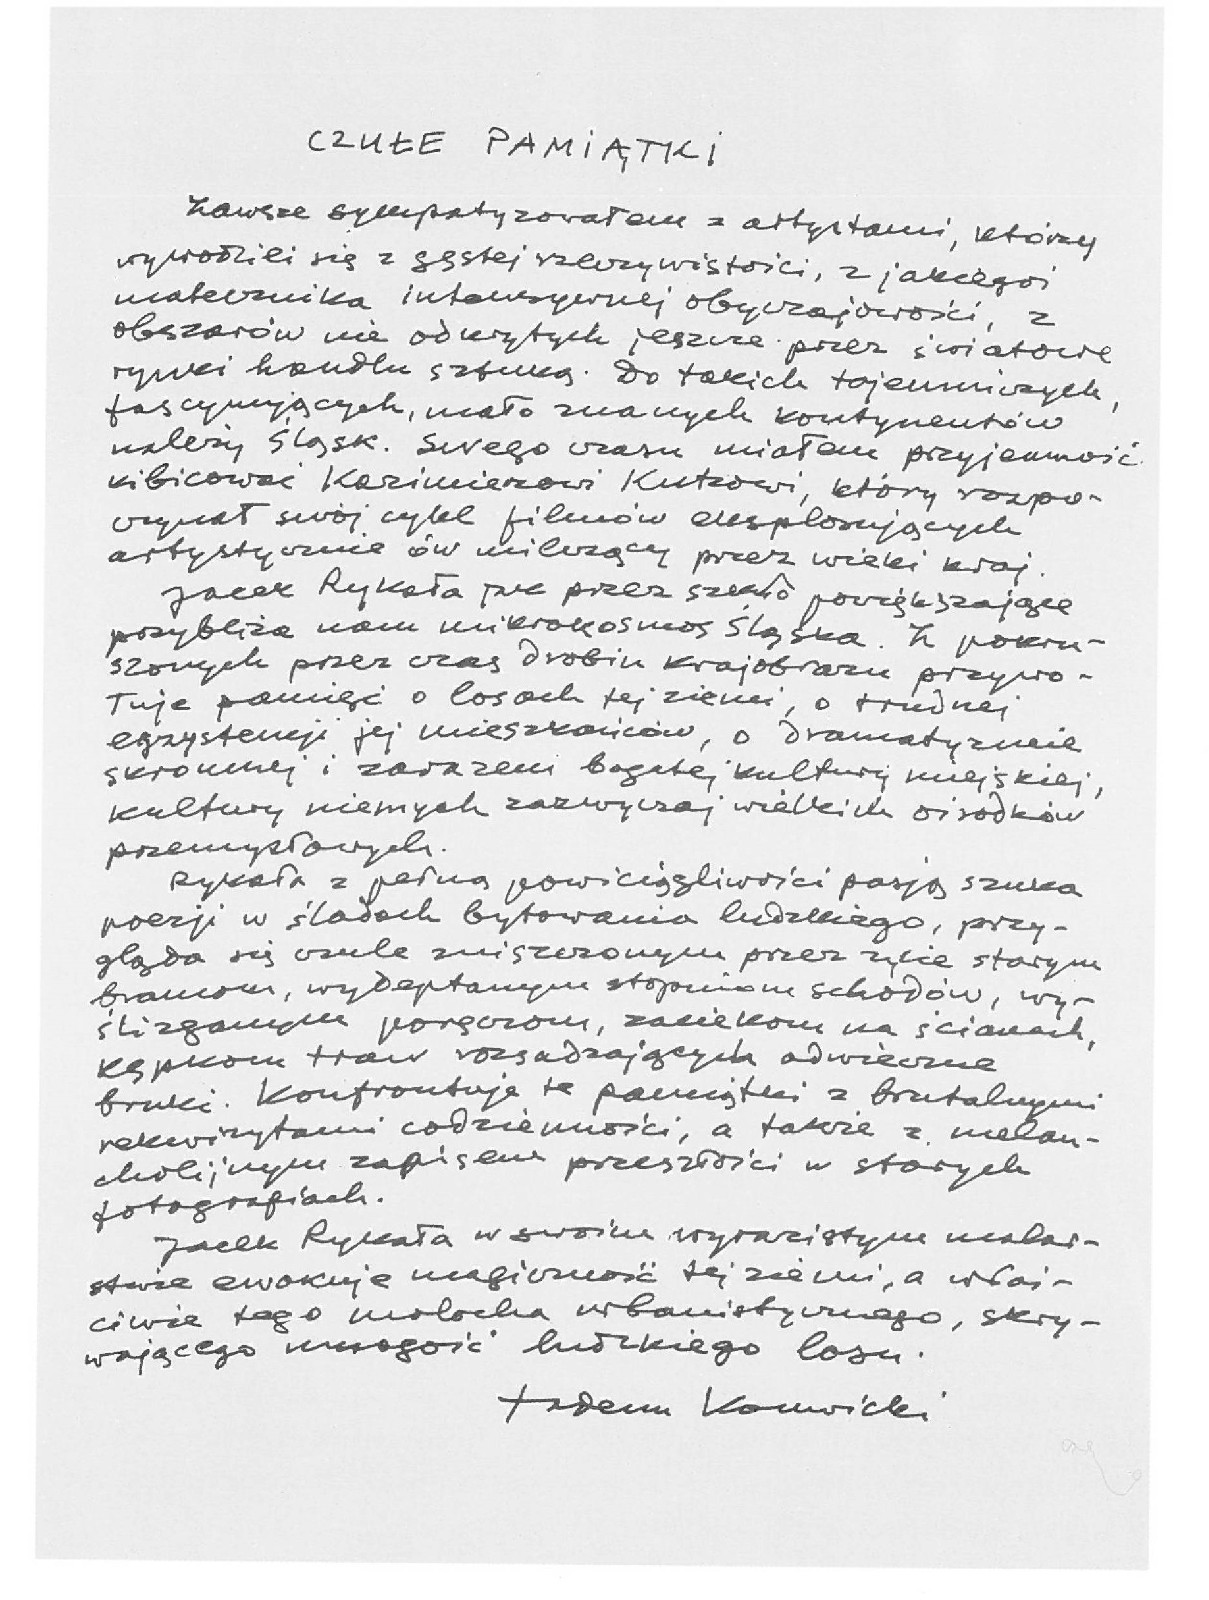 CZUŁE PAMIĄTKI
Zawsze sympatyzowałem z artystami, którzy
wywodzili się z gęstej rzeczywistości, z jakiegoś
matecznika intensywnej obyczajowości, z
obszarów nie odkrytych jeszcze przez światowe
rynki handlu sztuką. Do takich tajemniczych,
fascynujących, mało znanych kontynentów
należy Śląsk. Swego czasu miałem przyjemność
kibicować Kazimierzowi Kutzowi, który rozpo-
czynał swój cykl filmów eksplorujących
artystycznie ów milczący przez wieki kraj.
Jacek Rykała jak przez szkło powiększające
przybliża nam mikrokosmos Śląska. Z pokru-
szonych przez czas drobin krajobrazu przywo-
łuje pamięć o losach tej ziemi, o trudnej
egzystencji jej mieszkańców, o dramatycznie
skromnej i zarazem bogatej kultury miejskiej,
kultury niemych zazwyczaj wielkich ośrodków
przemysłowych.
Rykała z pełną powściągliwości pasją szuka
poezji w śladach bytowania ludzkiego, przy-
gląda się czule zniszczonym przez życie starym
bramom, wydeptanym stopniom schodów, wy-
ślizganym poręczom, zaciekom na ścianach,
kępkom traw rozsadzających odwieczne
bruki. Konfrontuje te pamiątki z brutalnymi
rekwizytami codzienności, a także z melan-
cholijnym zapisem przeszłości w starych
fotografiach.
Jacek Rykała w swoim wyrazistym malar-
stwie ewokuje magiczność tej ziemi, a właś-
ciwie tego molocha urbanistycznego, skry-
wającego mnogość ludzkiego losu.
Tadeusz Konwicki